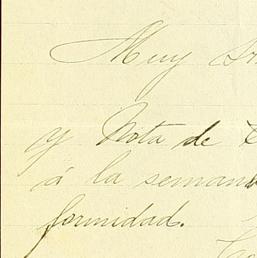 Muy
y Nota de
á la semana
formidad.